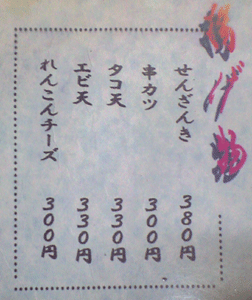 揚げ物
せんざんき 380円
串カツ 300円
タコ天 330円
エビ天 330円
れんこんチーズ 300円